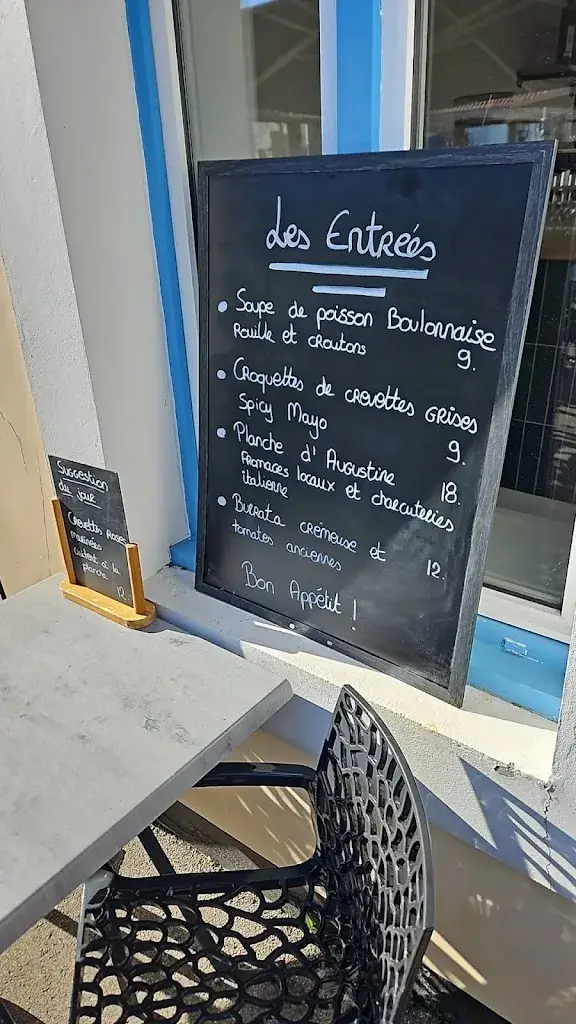 Les Entrées
Soupe de poisson Boulonnaise
Rouille et croutons 9.
Croquettes de crevettes Grises
Spicy Mayo 9.
Planche d'Augustine 18.
Fromages locaux et charcuteries
italienne
Burrata crémeuse et
tomates anciennes 12.
Bon Appétit !
Suggestion
du jour
Crevettes Roses
marinées
la
plancha
12.